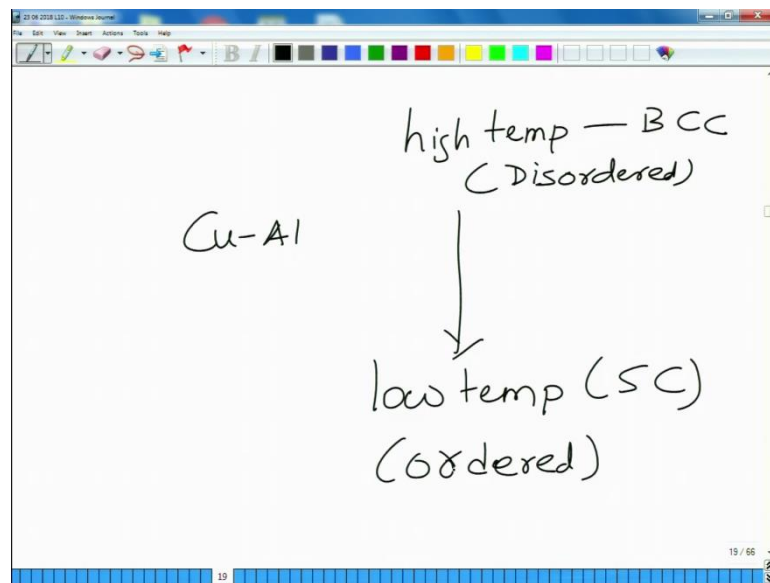 23 06 2018 L10 - Windows Journal
File Edit View Insert Actions Tools Help
B I
high temp — BCC
(Disordered)
Cu-Al
low temp (SC)
(ordered)
19 / 66
19